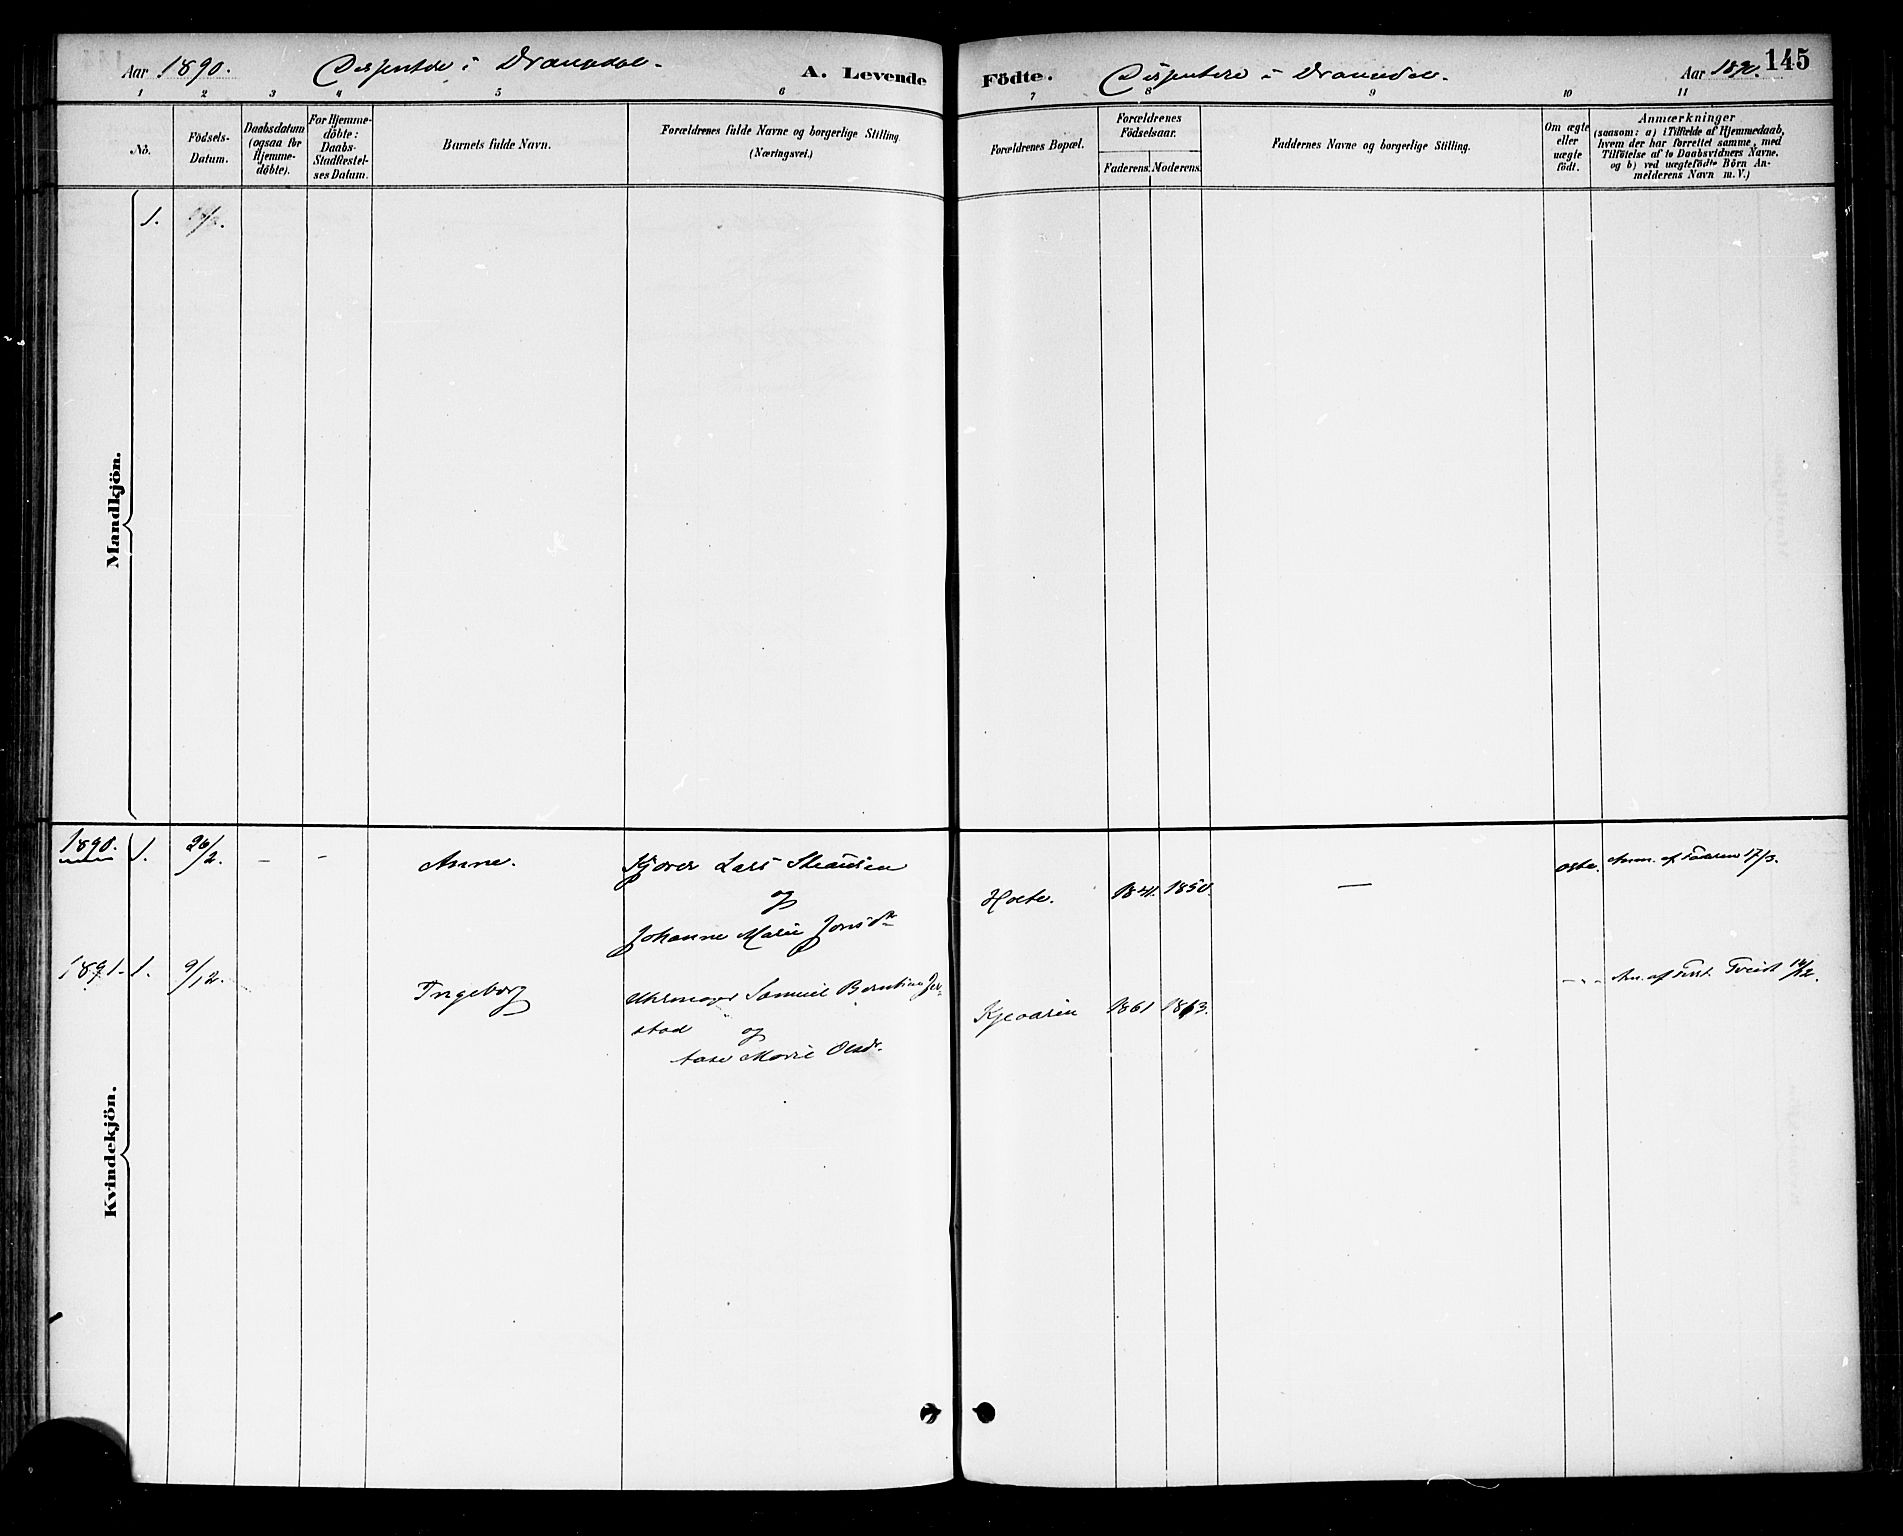 Aar 1890. Dissentere i Drangedal. A. Levende
Födte. Dissentere i Drangedal. Aar 1890. 145
1 2 3 4 5 6 7 8 9 10 11
No.
Födsels-
Datum.
Daabsdatum
(ogsaa for
Hjemme-
döbte).
For Hjemme-
döbte:
Daabs-
Stadfæstel-
ses Datum.
Barnets fulde Navn.
Forældrenes fulde Navne og borgerlige Stilling.
(Næringsvei.)
Forældrenes Bopæl.
Forældrenes
Födselsaar.
Faderens. Moderens.
Faddernes Navne og borgerlige Stilling.
Om ægte
eller
uægte
födt.
Anmærkninger
(saasom: a) i Tilfælde af Hjemmedaab,
hvem der har forrettet samme, med
Tilföielse af to Daabsvidners Navne.
og b) ved uægtefödte Börn An-
melderens Navn m. V.)
Mandkjön.
1.
Kvindekjön.
1890. 1. 26/2. - - Anne. Lars
og
Johanne Marie Jonsdr
1841. 1850. — ægte. Anm. af Faderen 17/3.
1891. 1. 9/12. Ingeborg Uhrmager Samuel
stad og
Aase Marie Olsdr.
1861 1863. - " - An. af 12.